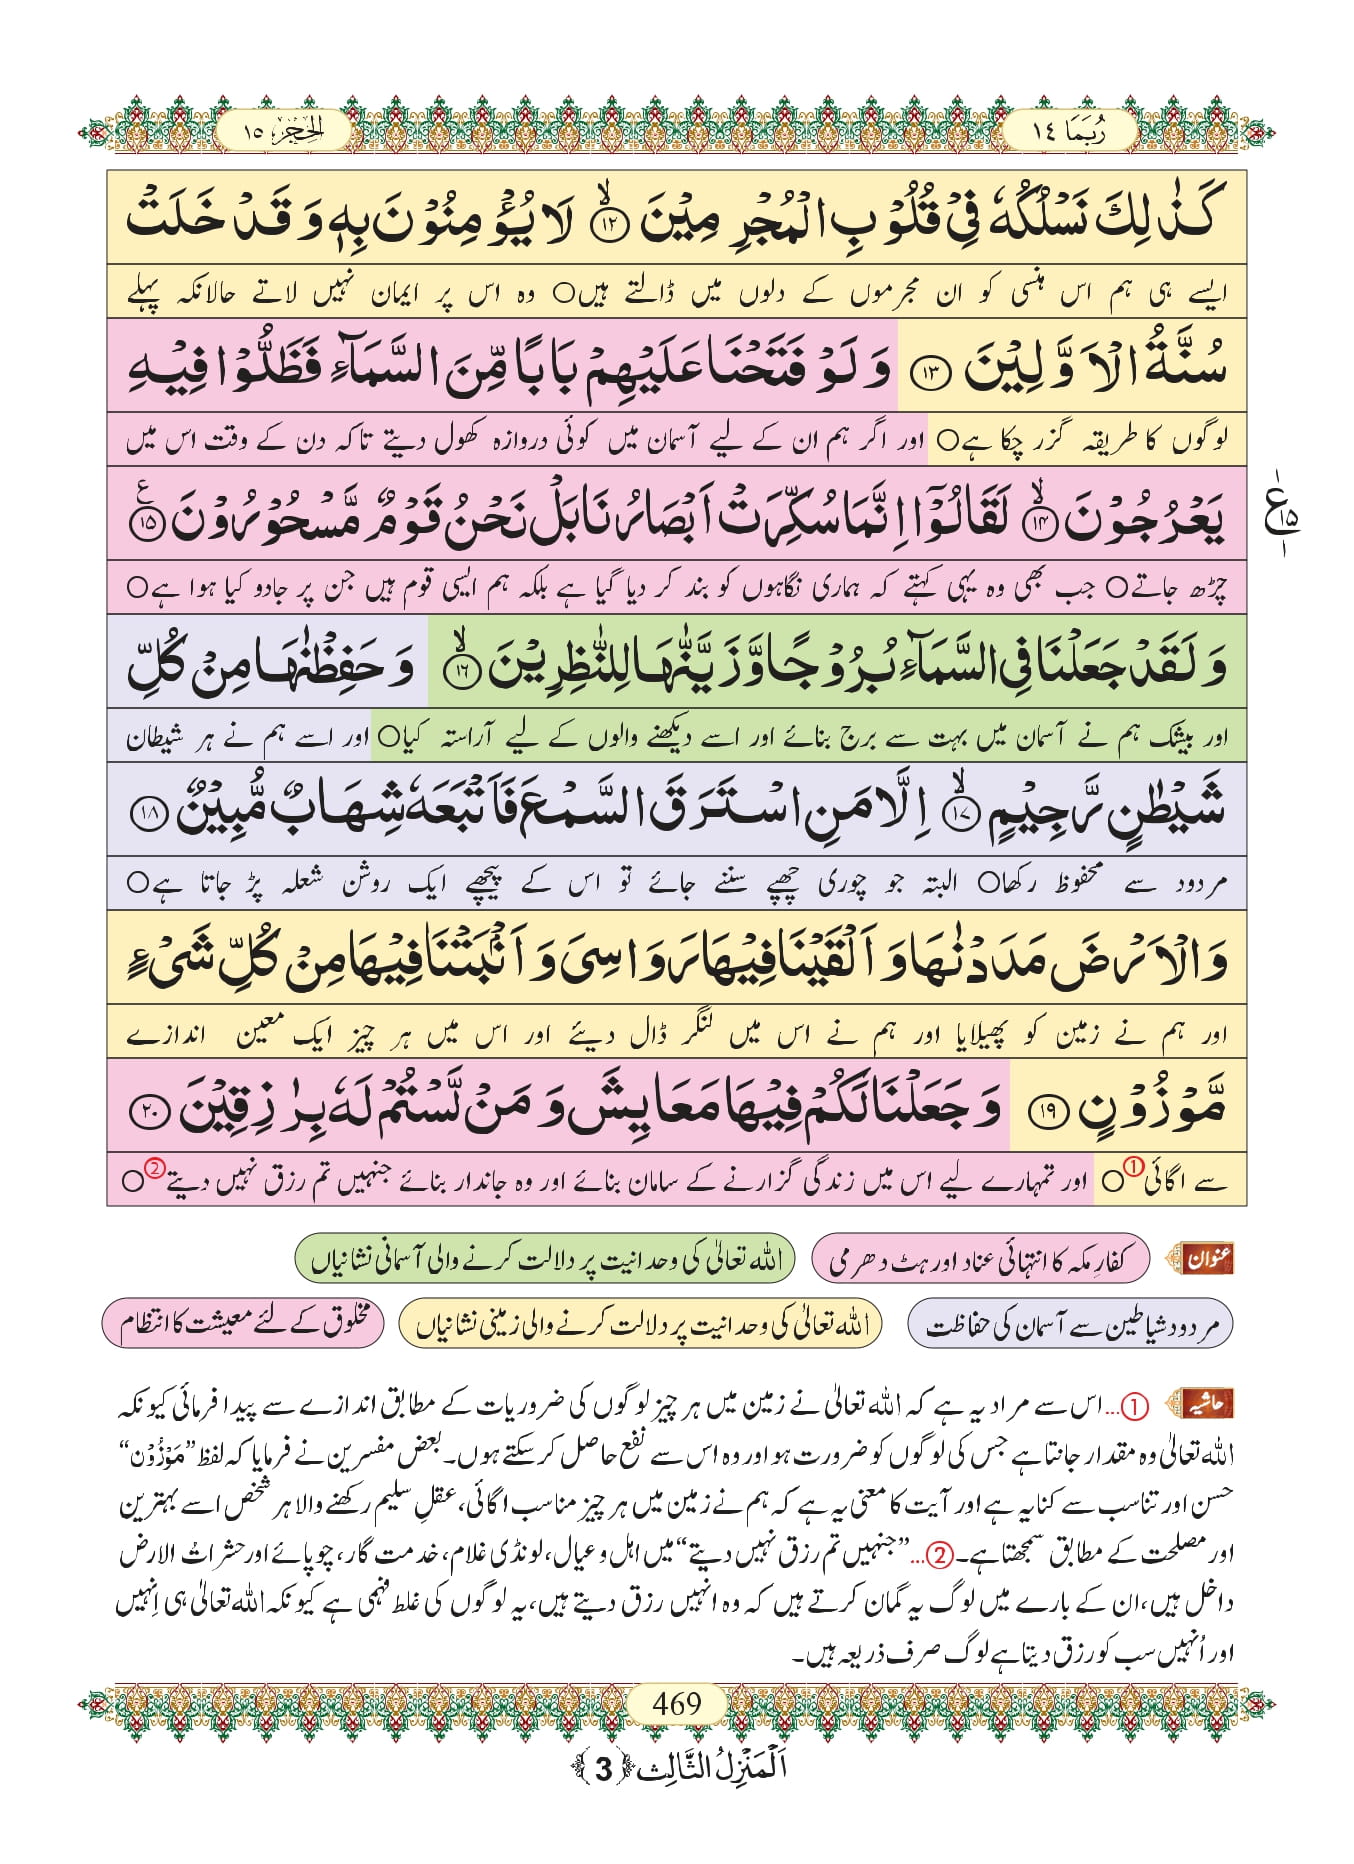 رُبَمَا ١٤
الحِجر ١٥
كَذٰلِكَ نَسْلُكُهٗ فِیْ قُلُوْبِ الْمُجْرِمِیْنَ ﴿۱۲﴾ لَا یُؤْمِنُوْنَ بِهٖ وَ قَدْ خَلَتْ
ایسے ہی ہم اس ہنسی کو ان مجرموں کے دلوں میں ڈالتے ہیں○ وہ اس پر ایمان نہیں لاتے حالانکہ پہلے
سُنَّةُ الْاَوَّلِیْنَ ﴿۱۳﴾ وَ لَوْ فَتَحْنَا عَلَیْهِمْ بَابًا مِّنَ السَّمَآءِ فَظَلُّوْا فِیْهِ
لوگوں کا طریقہ گزر چکا ہے○ اور اگر ہم ان کے لیے آسمان میں کوئی دروازہ کھول دیتے تاکہ دن کے وقت اس میں
یَعْرُجُوْنَ ﴿۱۴﴾ لَقَالُوْۤا اِنَّمَا سُكِّرَتْ اَبْصَارُنَا بَلْ نَحْنُ قَوْمٌ مَّسْحُوْرُوْنَ ﴿۱۵﴾ ع
ع ۱۵ ۱
چڑھ جاتے○ جب بھی وہ یہی کہتے کہ ہماری نگاہوں کو بند کر دیا گیا ہے بلکہ ہم ایسی قوم ہیں جن پر جادو کیا ہوا ہے○
وَ لَقَدْ جَعَلْنَا فِی السَّمَآءِ بُرُوْجًا وَّ زَیَّنّٰهَا لِلنّٰظِرِیْنَ ﴿۱۶﴾ وَ حَفِظْنٰهَا مِنْ كُلِّ
اور بیشک ہم نے آسمان میں بہت سے برج بنائے اور اسے دیکھنے والوں کے لیے آراستہ کیا○ اور اسے ہم نے ہر شیطان
شَیْطٰنٍ رَّجِیْمٍ ﴿۱۷﴾ اِلَّا مَنِ اسْتَرَقَ السَّمْعَ فَاَتْبَعَهٗ شِهَابٌ مُّبِیْنٌ ﴿۱۸﴾
مردود سے محفوظ رکھا○ البتہ جو چوری چھپے سننے جائے تو اس کے پیچھے ایک روشن شعلہ پڑ جاتا ہے○
وَ الْاَرْضَ مَدَدْنٰهَا وَ اَلْقَیْنَا فِیْهَا رَوَاسِیَ وَ اَنْۢبَتْنَا فِیْهَا مِنْ كُلِّ شَیْءٍ
اور ہم نے زمین کو پھیلایا اور ہم نے اس میں لنگر ڈال دیئے اور اس میں ہر چیز ایک معین اندازے
مَّوْزُوْنٍ ﴿۱۹﴾ وَ جَعَلْنَا لَكُمْ فِیْهَا مَعَایِشَ وَ مَنْ لَّسْتُمْ لَهٗ بِرٰزِقِیْنَ ﴿۲۰﴾
سے اگائی①○ اور تمہارے لیے اس میں زندگی گزارنے کے سامان بنائے اور وہ جاندار بنائے جنہیں تم رزق نہیں دیتے②○
عنوان
کفارِ مکہ کا انتہائی عناد اور ہٹ دھرمی
اللہ تعالیٰ کی وحدانیت پر دلالت کرنے والی آسمانی نشانیاں
مردود شیاطین سے آسمان کی حفاظت
اللہ تعالیٰ کی وحدانیت پر دلالت کرنے والی زمینی نشانیاں
مخلوق کے لئے معیشت کا انتظام
حاشیہ
①...اس سے مراد یہ ہے کہ اللہ تعالیٰ نے زمین میں ہر چیز لوگوں کی ضروریات کے مطابق اندازے سے پیدا فرمائی کیونکہ
اللہ تعالیٰ وہ مقدار جانتا ہے جس کی لوگوں کو ضرورت ہو اور وہ اس سے نفع حاصل کر سکتے ہوں۔ بعض مفسرین نے فرمایا کہ لفظ ”مَوْزُوْن“
حسن اور تناسب سے کنایہ ہے اور آیت کا معنی یہ ہے کہ ہم نے زمین میں ہر چیز مناسب اگائی، عقلِ سلیم رکھنے والا ہر شخص اسے بہترین
اور مصلحت کے مطابق سمجھتا ہے۔ ②...”جنہیں تم رزق نہیں دیتے“ میں اہل و عیال، لونڈی غلام، خدمت گار، چوپائے اور حشراتُ الارض
داخل ہیں، ان کے بارے میں لوگ یہ گمان کرتے ہیں کہ وہ انہیں رزق دیتے ہیں، یہ لوگوں کی غلط فہمی ہے کیونکہ اللہ تعالیٰ ہی اِنہیں
اور اُنہیں سب کو رزق دیتا ہے لوگ صرف ذریعہ ہیں۔
469
اَلْمَنْزِلُ الثَّالِث ﴿3﴾